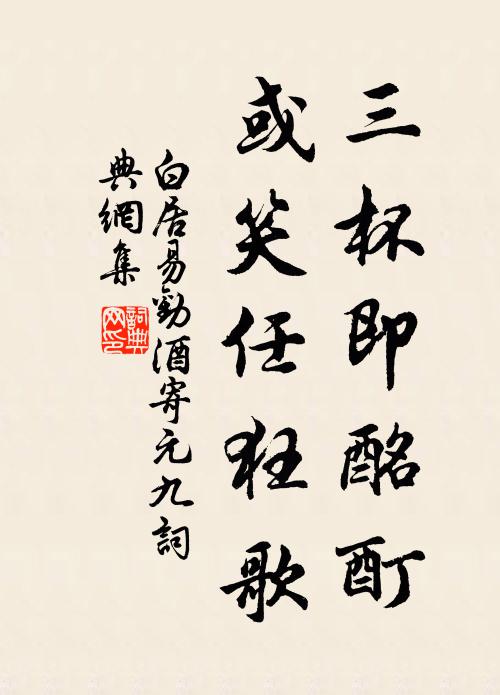 三杯即酩酊
或笑任狂歌
白居易勸酒寄元九詞
典網集
詞典
网印